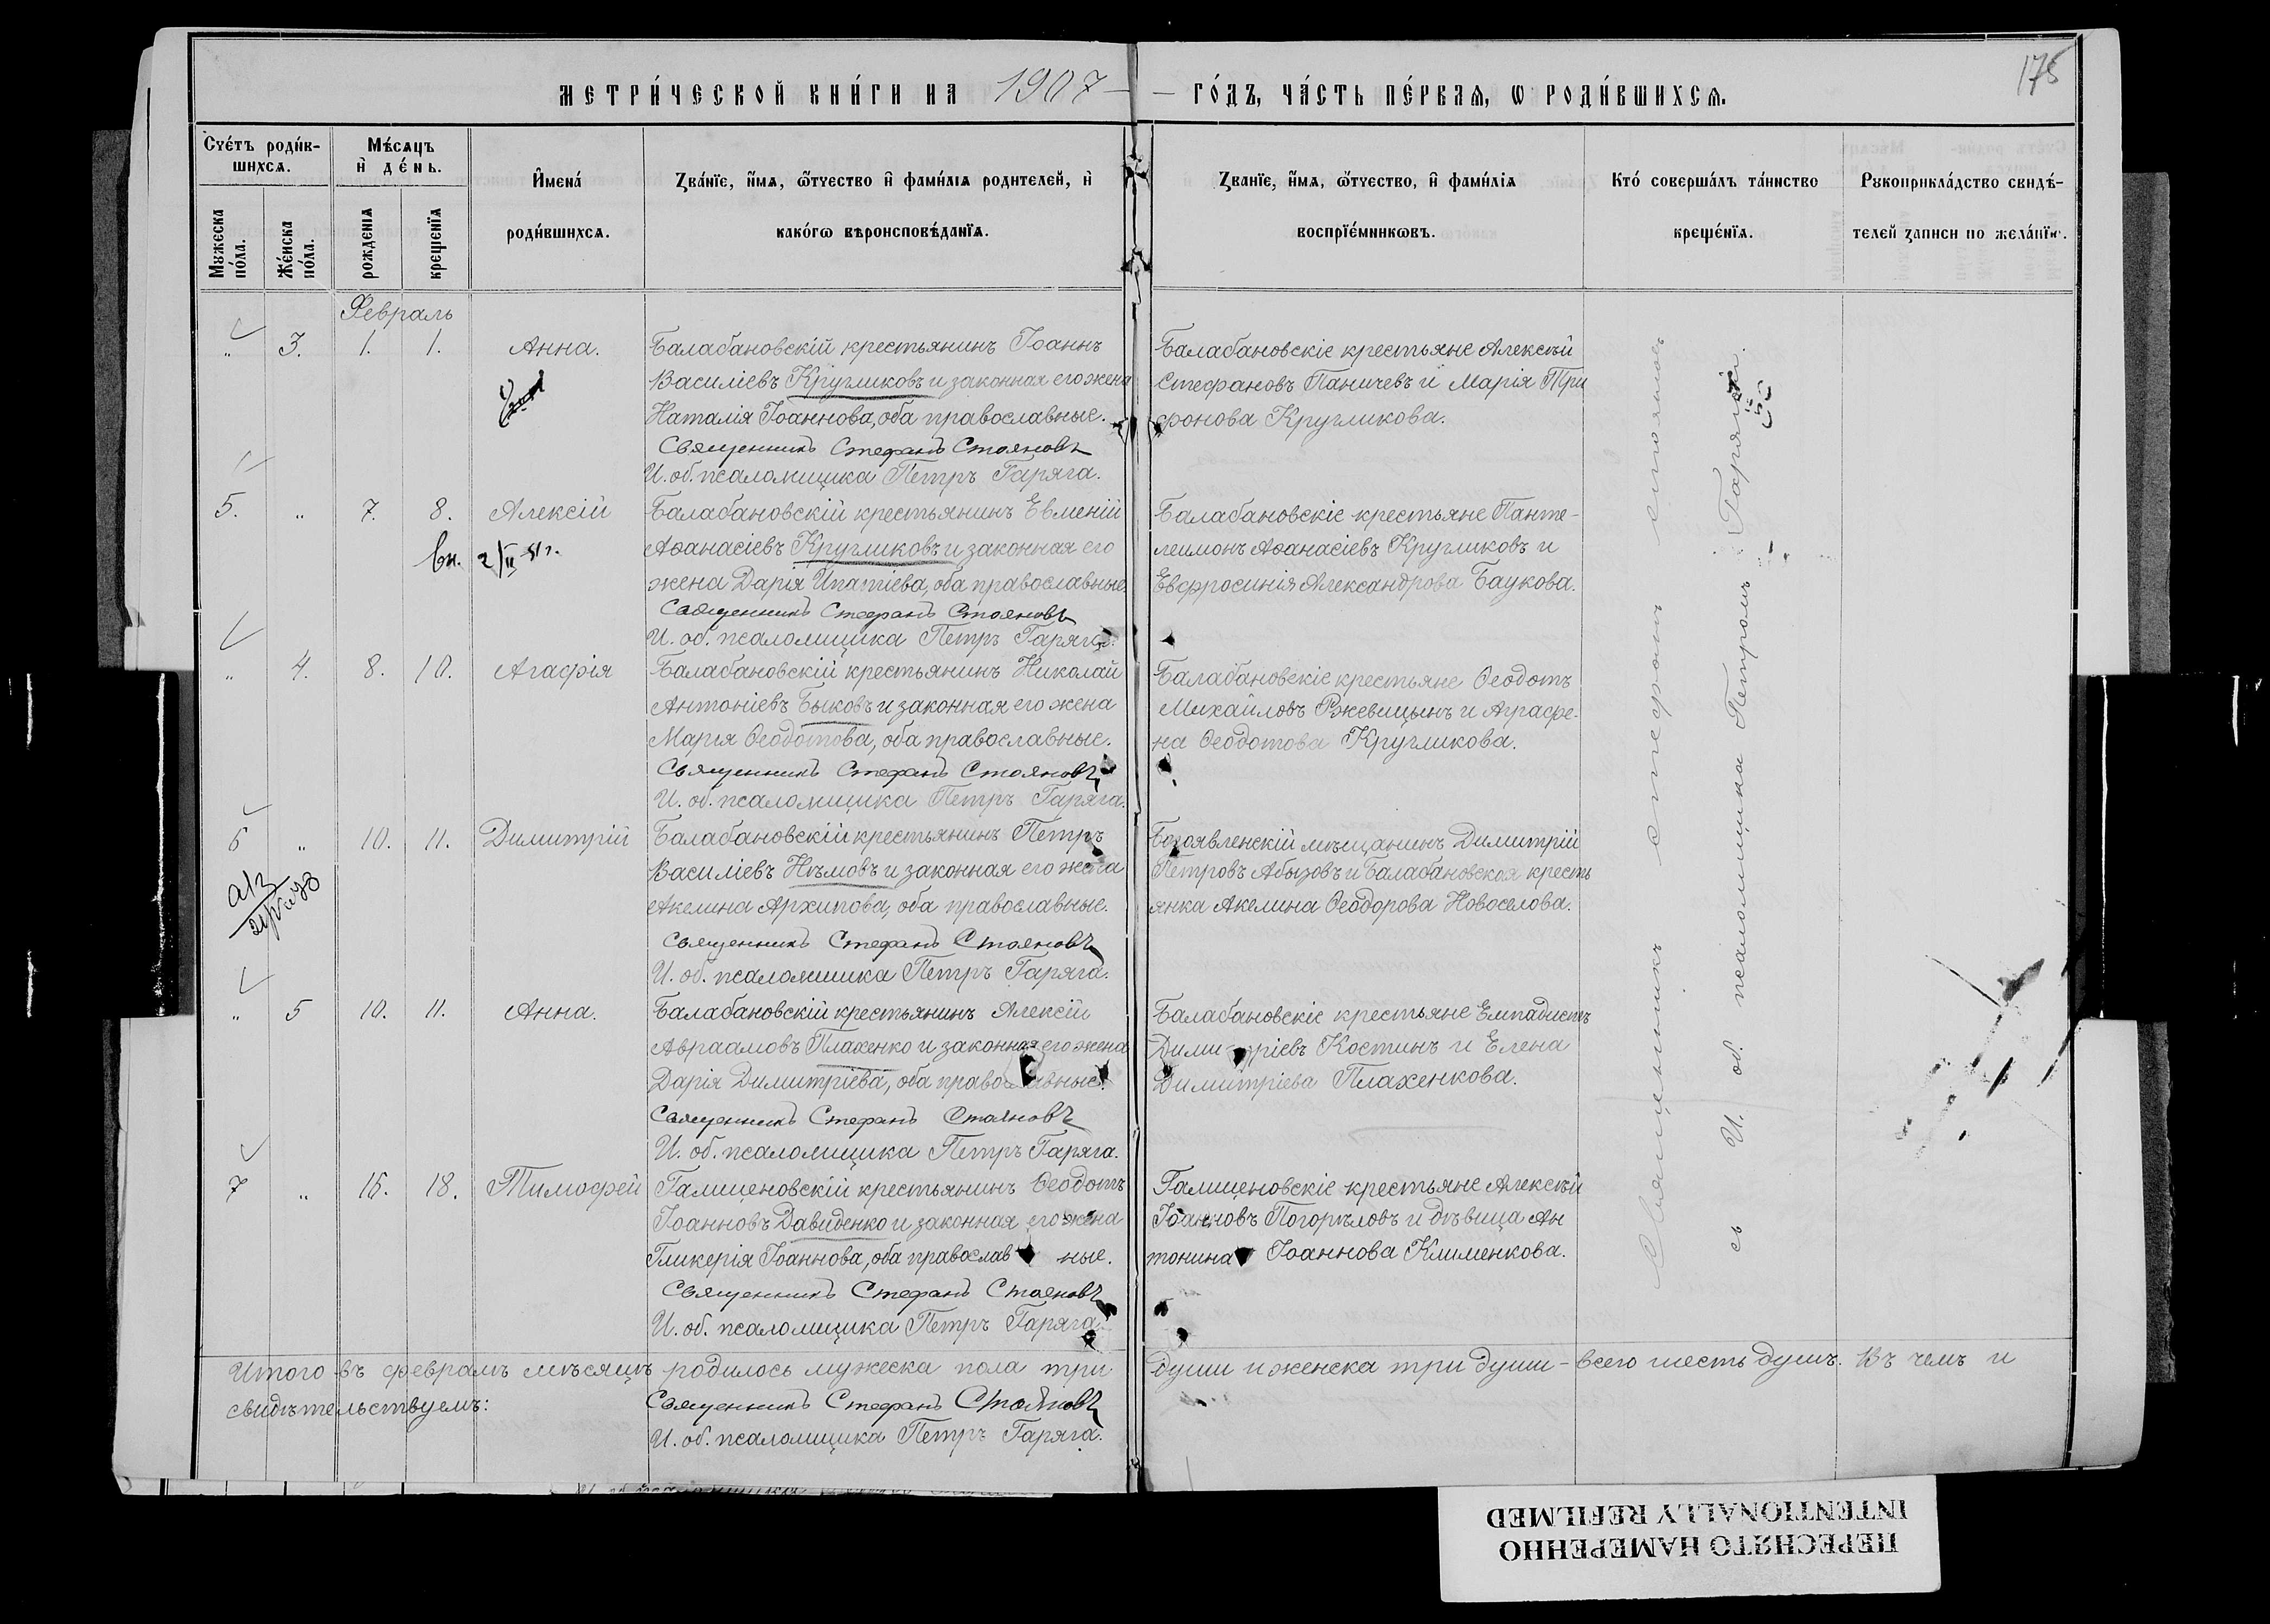 МЕТРИ́ЧЕСКОЙ КНИ́ГИ НА 1907 ГО́ДЪ, ЧА́СТЬ ПЕ́РВАѦ, Ѡ РОДИ́ВШИХСѦ.
175
Сче́тъ роди́в-
шихсѧ.
Мужеска
по́ла.
Же́нска
по́ла.
Мѣ́сѧцъ
и҆ де́нь.
рожденїѧ
крещенїѧ
И҆мена́
роди́вшихсѧ.
Зва́нїе, и҆́мѧ, ѻ҆́тчество и҆ фами́лїѧ родителей, и҆
како́гѡ вѣроисповѣ́данїѧ.
Званїе, и҆́мѧ, ѻ҆́тчество, и҆ фами́лїѧ
воспрїе́мникѡвъ.
Кто́ соверша́лъ та́инство
креще́нїѧ.
Рукоприкла́дство свидѣ́-
телей записи по жела́нїю.
Февраль
" 3. 1. 1. Анна. Балабановскій крестьянинъ Іоаннъ
Василіевъ Кругликовъ и законная его жена
Наталія Іоаннова, оба православные.
Священникъ Стефанъ Стояновъ
И. об. псаломщика Петръ Гаряга.
Балабановскіе крестьяне Алексѣй
Стефановъ Паничевъ и Марія Три
фонова Кругликова.
5. " 7. 8. Алексій Балабановскій крестьянинъ Евменій
Аѳанасіевъ Кругликовъ и законная его
жена Дарія Ипатіева, оба православные.
Священникъ Стефанъ Стояновъ
И. об. псаломщика Петръ Гаряга.
вн. 2/II
Балабановскіе крестьяне Панте-
леимонъ Аѳанасіевъ Кругликовъ и
Евфросинія Александрова Баукова.
" 4. 8. 10. Агафія Балабановскій крестьянинъ Николай
Антоніевъ Быковъ и законная его жена
Марія Ѳеодотова, оба православные.
Священникъ Стефанъ Стояновъ
И. об. псаломщика Петръ Гаряга.
Балабановскіе крестьяне Ѳеодотъ
Михайловъ Ржевицынъ и Аграфе-
на Ѳеодотова Кругликова.
6 " 10. 11. Димитрій Балабановскій крестьянинъ Петръ
Василіевъ Нѣмовъ и законная его жена
Акелина Архипова, оба православные.
Священникъ Стефанъ Стояновъ
И. об. псаломщика Петръ Гаряга.
Богоявленскій мѣщанинъ Димитрій
Петровъ Абызовъ и Балабановская кресть
янка Акелина Ѳеодорова Новоселова.
" 5 10. 11. Анна. Балабановскій крестьянинъ Алексій
Авраамовъ Плахенко и законная его жена
Дарія Димитріева, оба православные.
Священникъ Стефанъ Стояновъ
И. об. псаломщика Петръ Гаряга.
Балабановскіе крестьяне Емпадистъ
Димитріевъ Костинъ и Елена
Димитріева Плахенкова.
7 " 15. 18. Тимофей Галиценовскій крестьянинъ Ѳеодотъ
Іоанновъ Давиденко и законная его жена
Гликерія Іоаннова, оба православ ные.
Священникъ Стефанъ Стояновъ
И. об. псаломщика Петръ Гаряга.
Галиценовскіе крестьяне Алексѣй
Іоанновъ Погорѣловъ и дѣвица Ан
тонина Іоаннова Клименкова.
Священникъ Стефанъ Стояновъ
съ И. об. псаломщика Петромъ Гарягою.
Итого въ февралѣ мѣсяцѣ родилось мужеска пола три души и женска три души - всего шесть душъ. Въ чемъ и
свидѣтельствуемъ:
Священникъ Стефанъ Стояновъ
И. об. псаломщика Петръ Гаряга.
ПЕРЕСНЯТО НАМЕРЕННО
INTENTIONALLY REFILMED